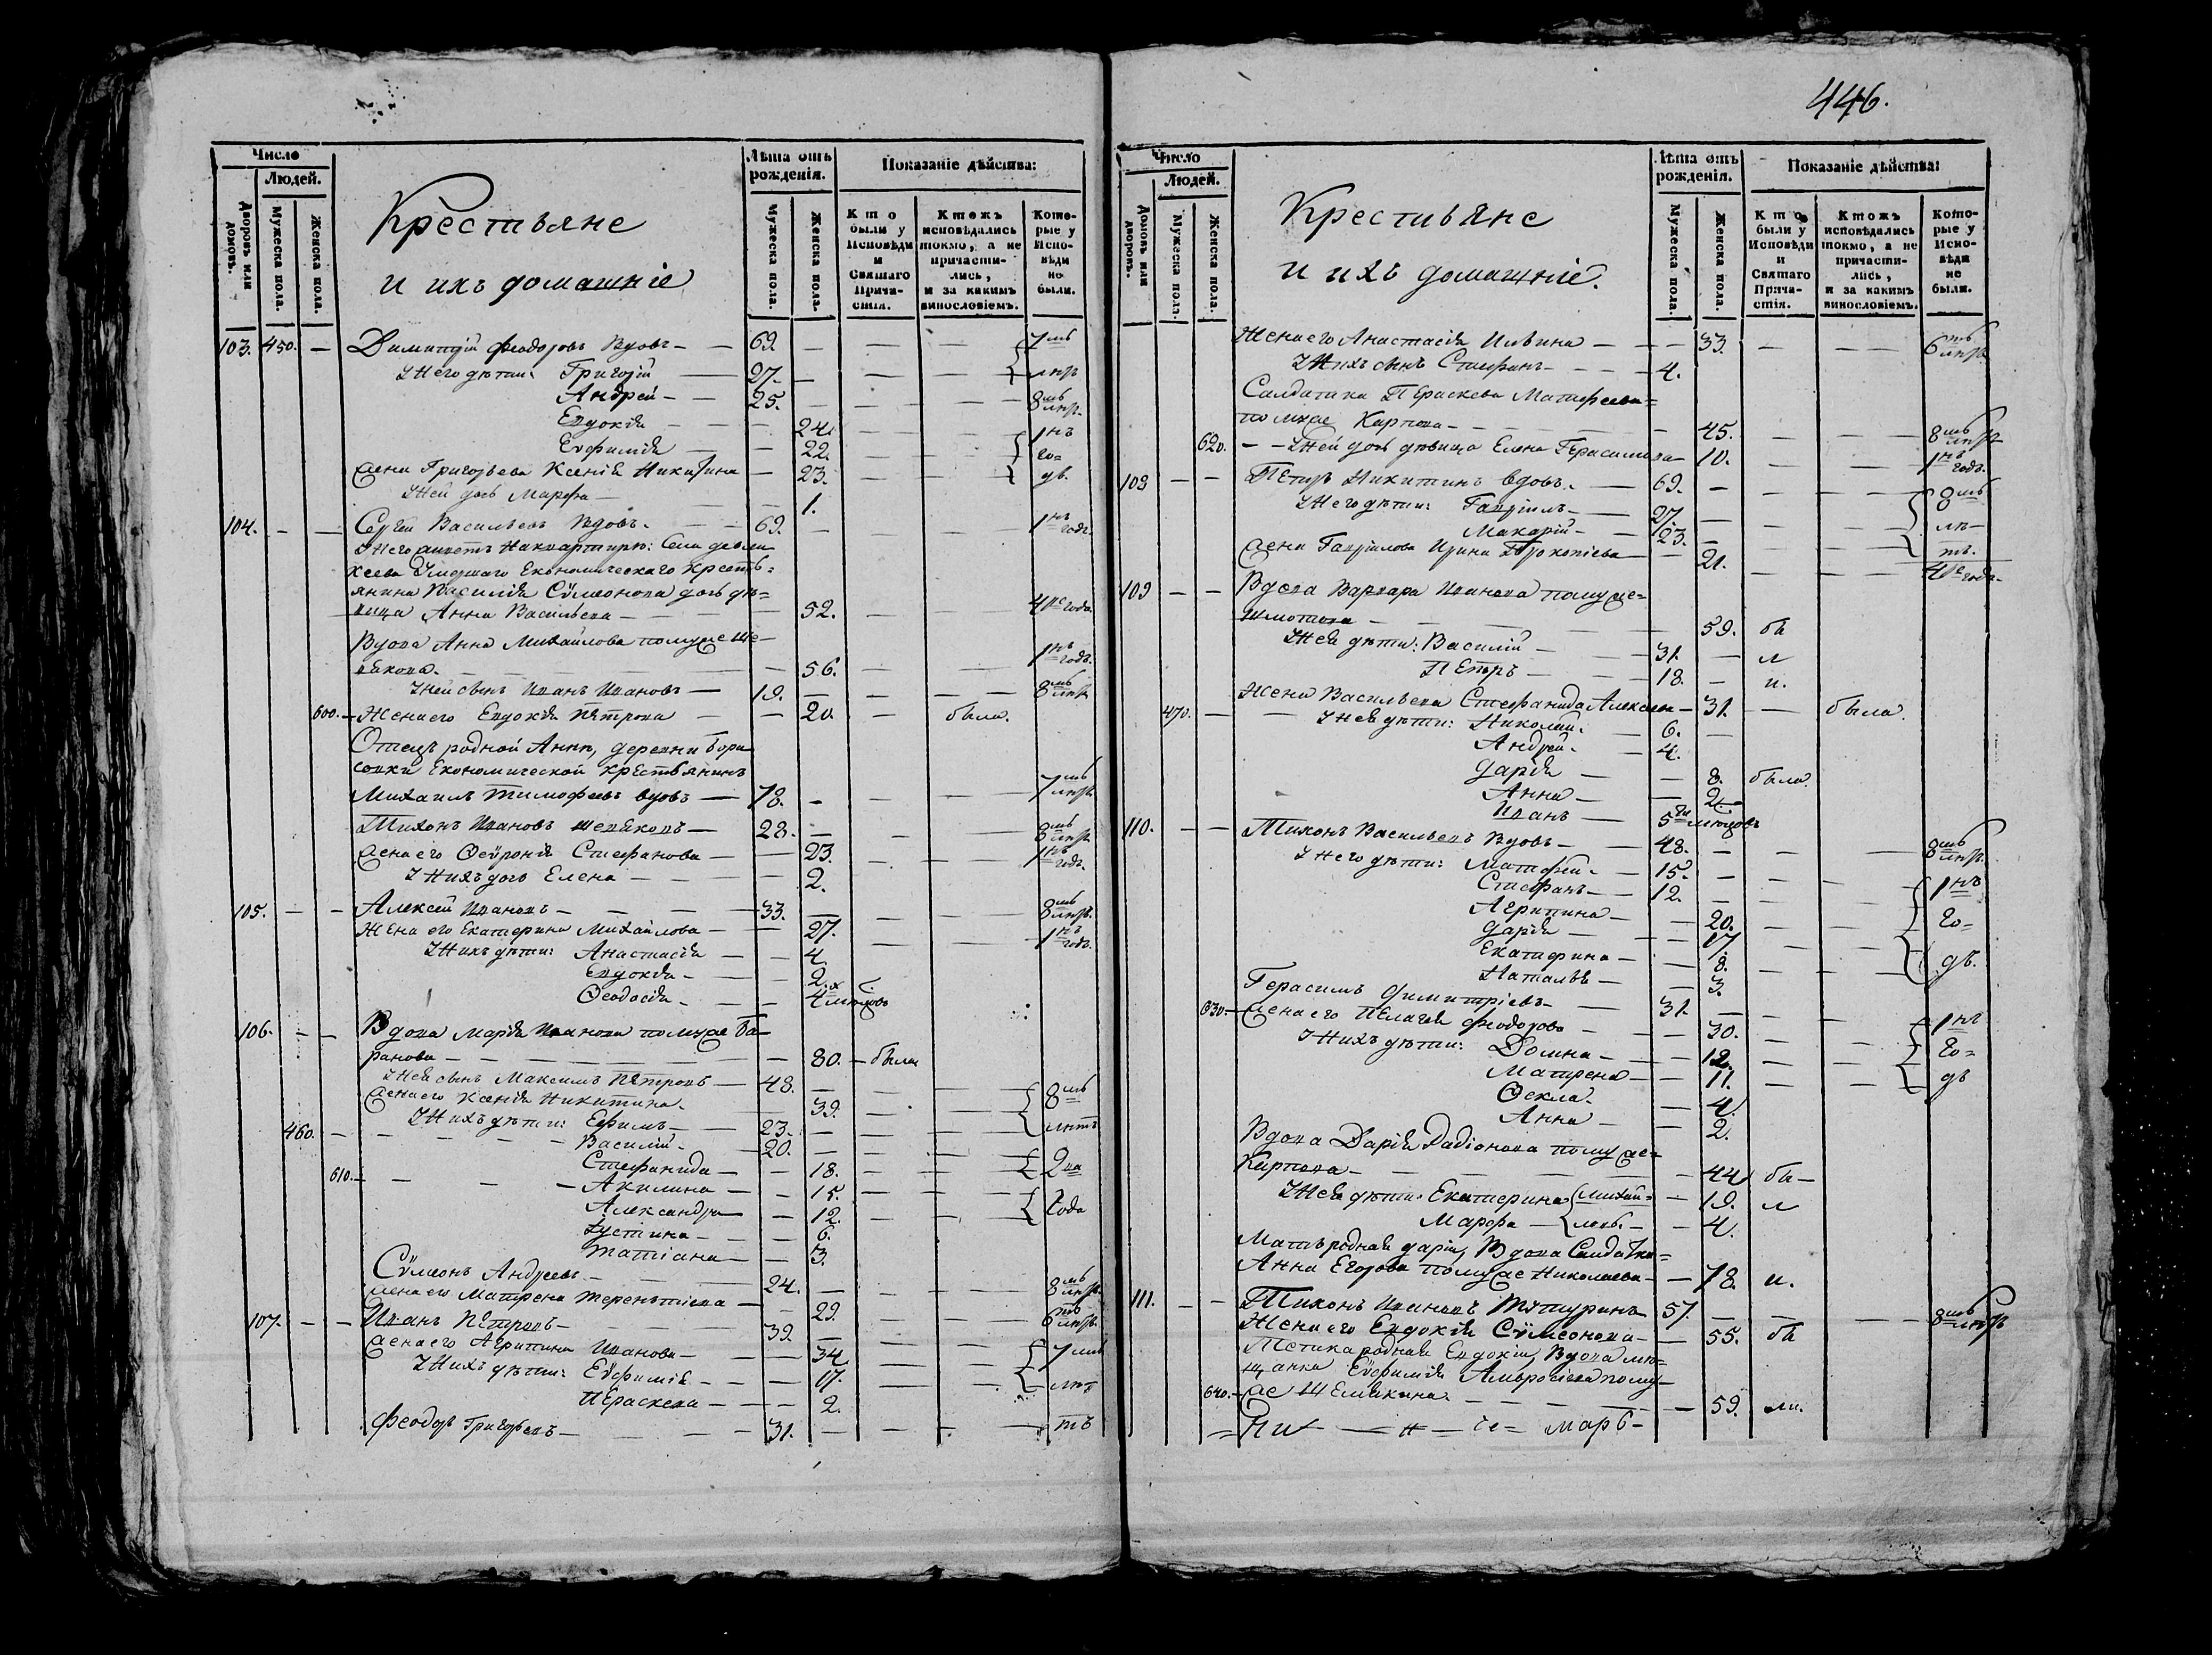 446.
Число
Людей.
Дворовъ или домовъ.
Мужеска пола.
Женска пола.
Крестьяне
и ихъ домашніе
Лѣта отъ рожденія.
Мужеска пола.
Женска пола.
Показаніе дѣйства:
Кто были у Исповѣди и Святаго Причастія.
Ктожъ исповѣдались токмо, а не причастились, и за какимъ винословіемъ.
Которые у Исповѣди не были.
103. 450. — Димитрій Феодоровъ Вдовъ — 69. — — — 7мь
У него дѣти: Григорій — 27. — — — лѣтъ
Андрей — 25. — — — 8мь лѣтъ
Евдокія — 24. — — 1нъ
Евфимія — 22. — — го=
Жена Григорьева Ксенія Никитина — 23. — — дъ.
У ней дочь Марфа — 1.
104. — — Сергей Васильевъ Вдовъ. — 69. — — 1нъ годъ.
У него живетъ на квартирѣ: Села
Умершаго Економическаго Кресть=
янина Василія Сѵмеонова дочь дѣ=
вица Анна Васильева — 52. — — 4ре года.
Вдова Анна Михайлова по мужѣ Ше=
вякова. — 56. — — 1нъ годъ.
У ней сынъ Иванъ Ивановъ — 19. — — — 8мь лѣтъ
600. — Жена его Евдокія Петрова — 20. — была.
Отецъ родной Анны, деревни Бори=
совки Економической Крестьянинъ
Михаилъ Тимофеевъ вдовъ — 78. — — — 7мь лѣтъ.
Тихонъ Ивановъ Шевяковъ — 28. — — 8мь лѣтъ
Жена его Ѳеѵронія Стефанова — 23. — — 1нъ годъ.
У нихъ дочь Елена — 2.
105. — — Алексей Ивановъ — 33. — — 8мь лѣтъ.
Жена его Екатерина Михайлова — 27. — — 1нъ годъ.
У нихъ дѣти: Анастасія — 4.
Евдокія — 2.
Ѳеодосія — 4х месецовъ
106. — — Вдова Марія Иванова по мужѣ Ба=
ранова — 80. — была
У нея сынъ Максимъ Петровъ — 48. — — 8мь
Жена его Ксенія Никитина. — 39. — —
460. У нихъ дѣти: Ефимъ — 23. — — лѣтъ
Василій — 20. — —
Стефанида — 18. — — 2ва
610. — Акилина — 15. — —
Александра — 12. — — года
Іустина — 6.
Татіана — 3.
Сѵмеонъ Андреевъ — 24. — — 8мь лѣтъ.
Жена его Матрена Терентіева — 29. — — 6ть лѣтъ.
107. — — Иванъ Петровъ — 39. — —
Жена его Агрипина Иванова — 34. — — 7мь
У нихъ дѣти: Еѵфимія — 17. — — лѣ=
Параскева — 2.
Феодоръ Григорьевъ — 31. — — — тъ
Число
Людей.
Домовъ или дворовъ.
Мужеска пола.
Женска пола.
Крестьяне
и ихъ домашніе.
Лѣта отъ рожденія.
Мужеска пола.
Женска пола.
Показаніе дѣйства:
Кто были у Исповѣди и Святаго Причастія.
Ктожъ исповѣдались токмо, а не причастились, и за какимъ винословіемъ.
Которые у Исповѣди не были.
Жена его Анастасія Ильина — 33. — — 6ть лѣтъ
У нихъ сынъ Стефанъ — 4.
Салдатка Параскева Матфеева=
по мужѣ Карпова — 45. — — 8мь лѣтъ
620. — У ней дочь дѣвица Елена Герасимова — 10. — — 1нъ годъ.
109 — — Петръ Никитинъ вдовъ. — 69. — — — 8мь
У него дѣти: Гавріилъ — 27. — — лѣ—
Макарій — 23. — — тъ.
Жена Гавріилова Ирина Прокопіева — 21. — — 4ре года.
109 — — Вдова Варвара Иванова по муже=
— 59. бы
У нея дѣти: Василій — 31. — л
Петръ — 18. — и.
Жена Васильева Стефанида Алексеева — 31. — была.
470. — — У нея дѣти: Николай. — 6. —
Андрей. — 4.
Дарія — 8. была
Анна — 2.
Иванъ — 5ти месецовъ
110. — — Тихонъ Васильевъ Вдовъ — 48. — — 8мь лѣтъ.
У него дѣти: Матфей — 15. — —
Стефанъ — 12. — — 1нъ
Агрипина — 20. — —
Дарія — 17. — — го=
Екатерина — 8. — — дъ.
Наталья — 3.
Герасимъ Димитріевъ — 31. — —
630. — Жена его Пелагея Феодорова — 30. — — 1нъ
У нихъ дѣти: Домна — 12. — — го=
Матрена — 11. — — дъ
Ѳекла. — 4.
Анна — 2.
Вдова Дарія Радіонова по муже=
Карпова — 44. бы—
У нея дѣти: Екатерина Михай= — 19. л
Марфа — ловы. — 4.
Мать родная Даріи, Вдова Салдатка=
Анна Егорова по муже Николаева — 78. и.
111. — — Тихонъ Ивановъ — 57. — — 8мь лѣтъ
Жена его Евдокія Сѵмеонова — 55. бы
Тетка родная Евдокіи, Вдова мѣ=
щанка Еѵфимія Амвросіева по му=
640. — же Шемякина. — 59. ли.